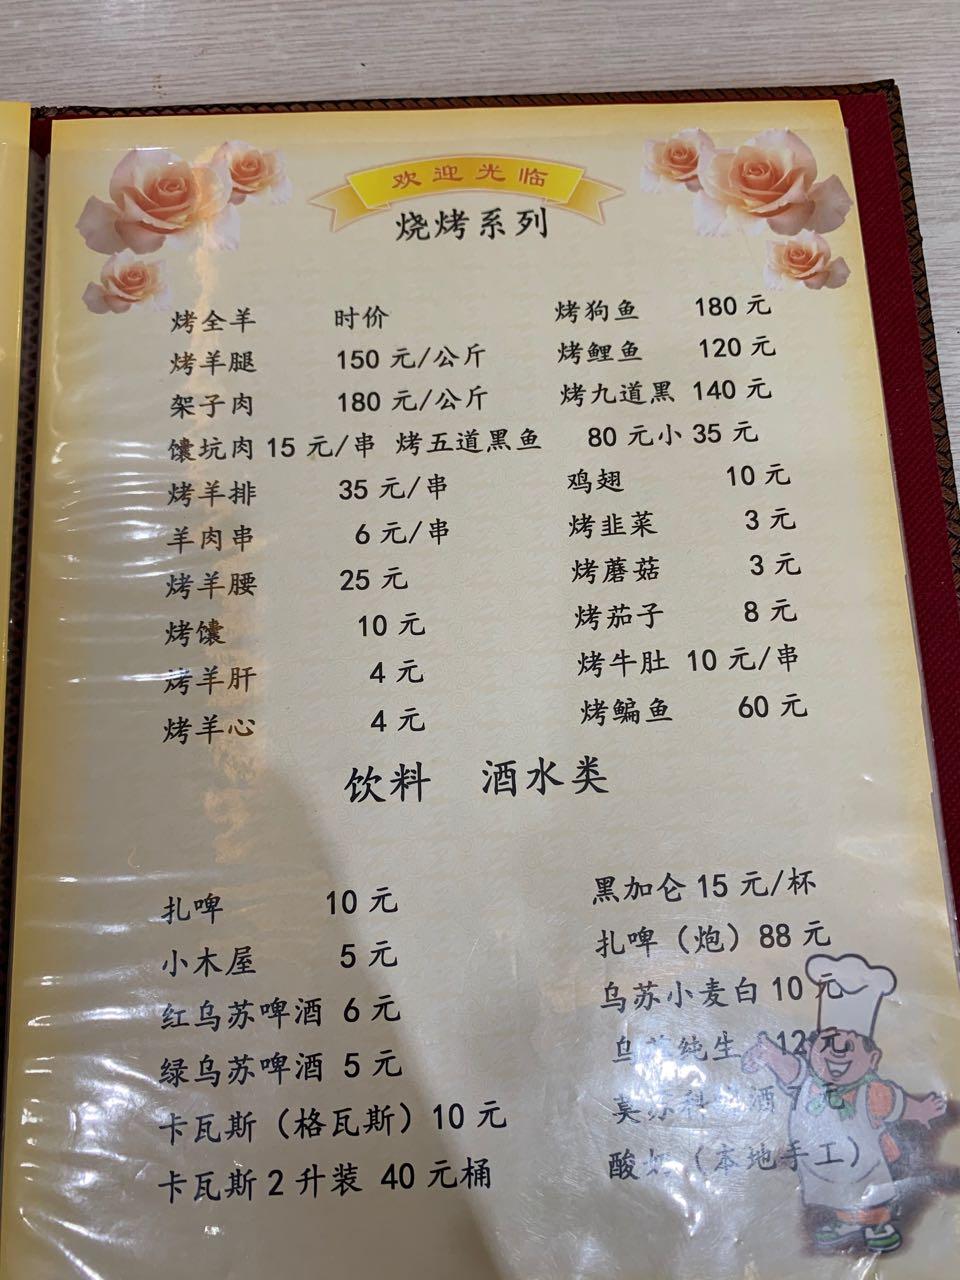 欢迎光临
烧烤系列
烤全羊 时价 烤狗鱼 180 元
烤羊腿 150 元/公斤 烤鲤鱼 120 元
架子肉 180 元/公斤 烤九道黑 140 元
馕坑肉 15 元/串 烤五道黑鱼 80 元小 35 元
烤羊排 35 元/串 鸡翅 10 元
羊肉串 6 元/串 烤韭菜 3 元
烤羊腰 25 元 烤蘑菇 3 元
烤馕 10 元 烤茄子 8 元
烤羊肝 4 元 烤牛肚 10 元/串
烤羊心 4 元 烤鳊鱼 60 元
饮料 酒水类
扎啤 10 元 黑加仑 15 元/杯
小木屋 5 元 扎啤（炮）88 元
红乌苏啤酒 6 元 乌苏小麦白 10 元
绿乌苏啤酒 5 元 乌苏纯生 12 元
卡瓦斯（格瓦斯）10 元 酒 7 元
卡瓦斯 2 升装 40 元桶 酸奶（本地手工）